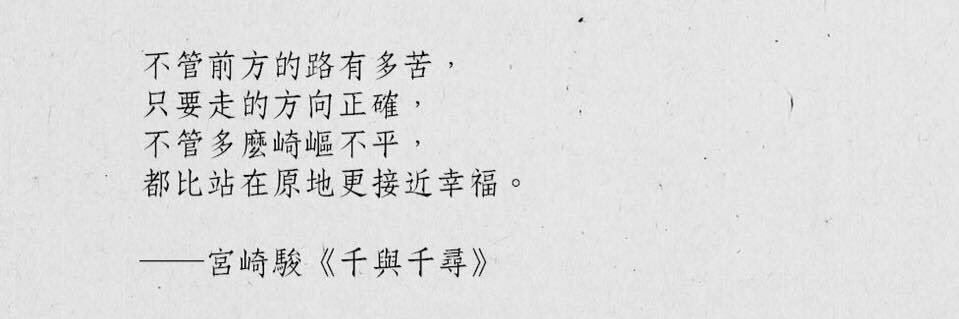 不管前方的路有多苦，
只要走的方向正確，
不管多麼崎嶇不平，
都比站在原地更接近幸福。
——宮崎駿《千與千尋》